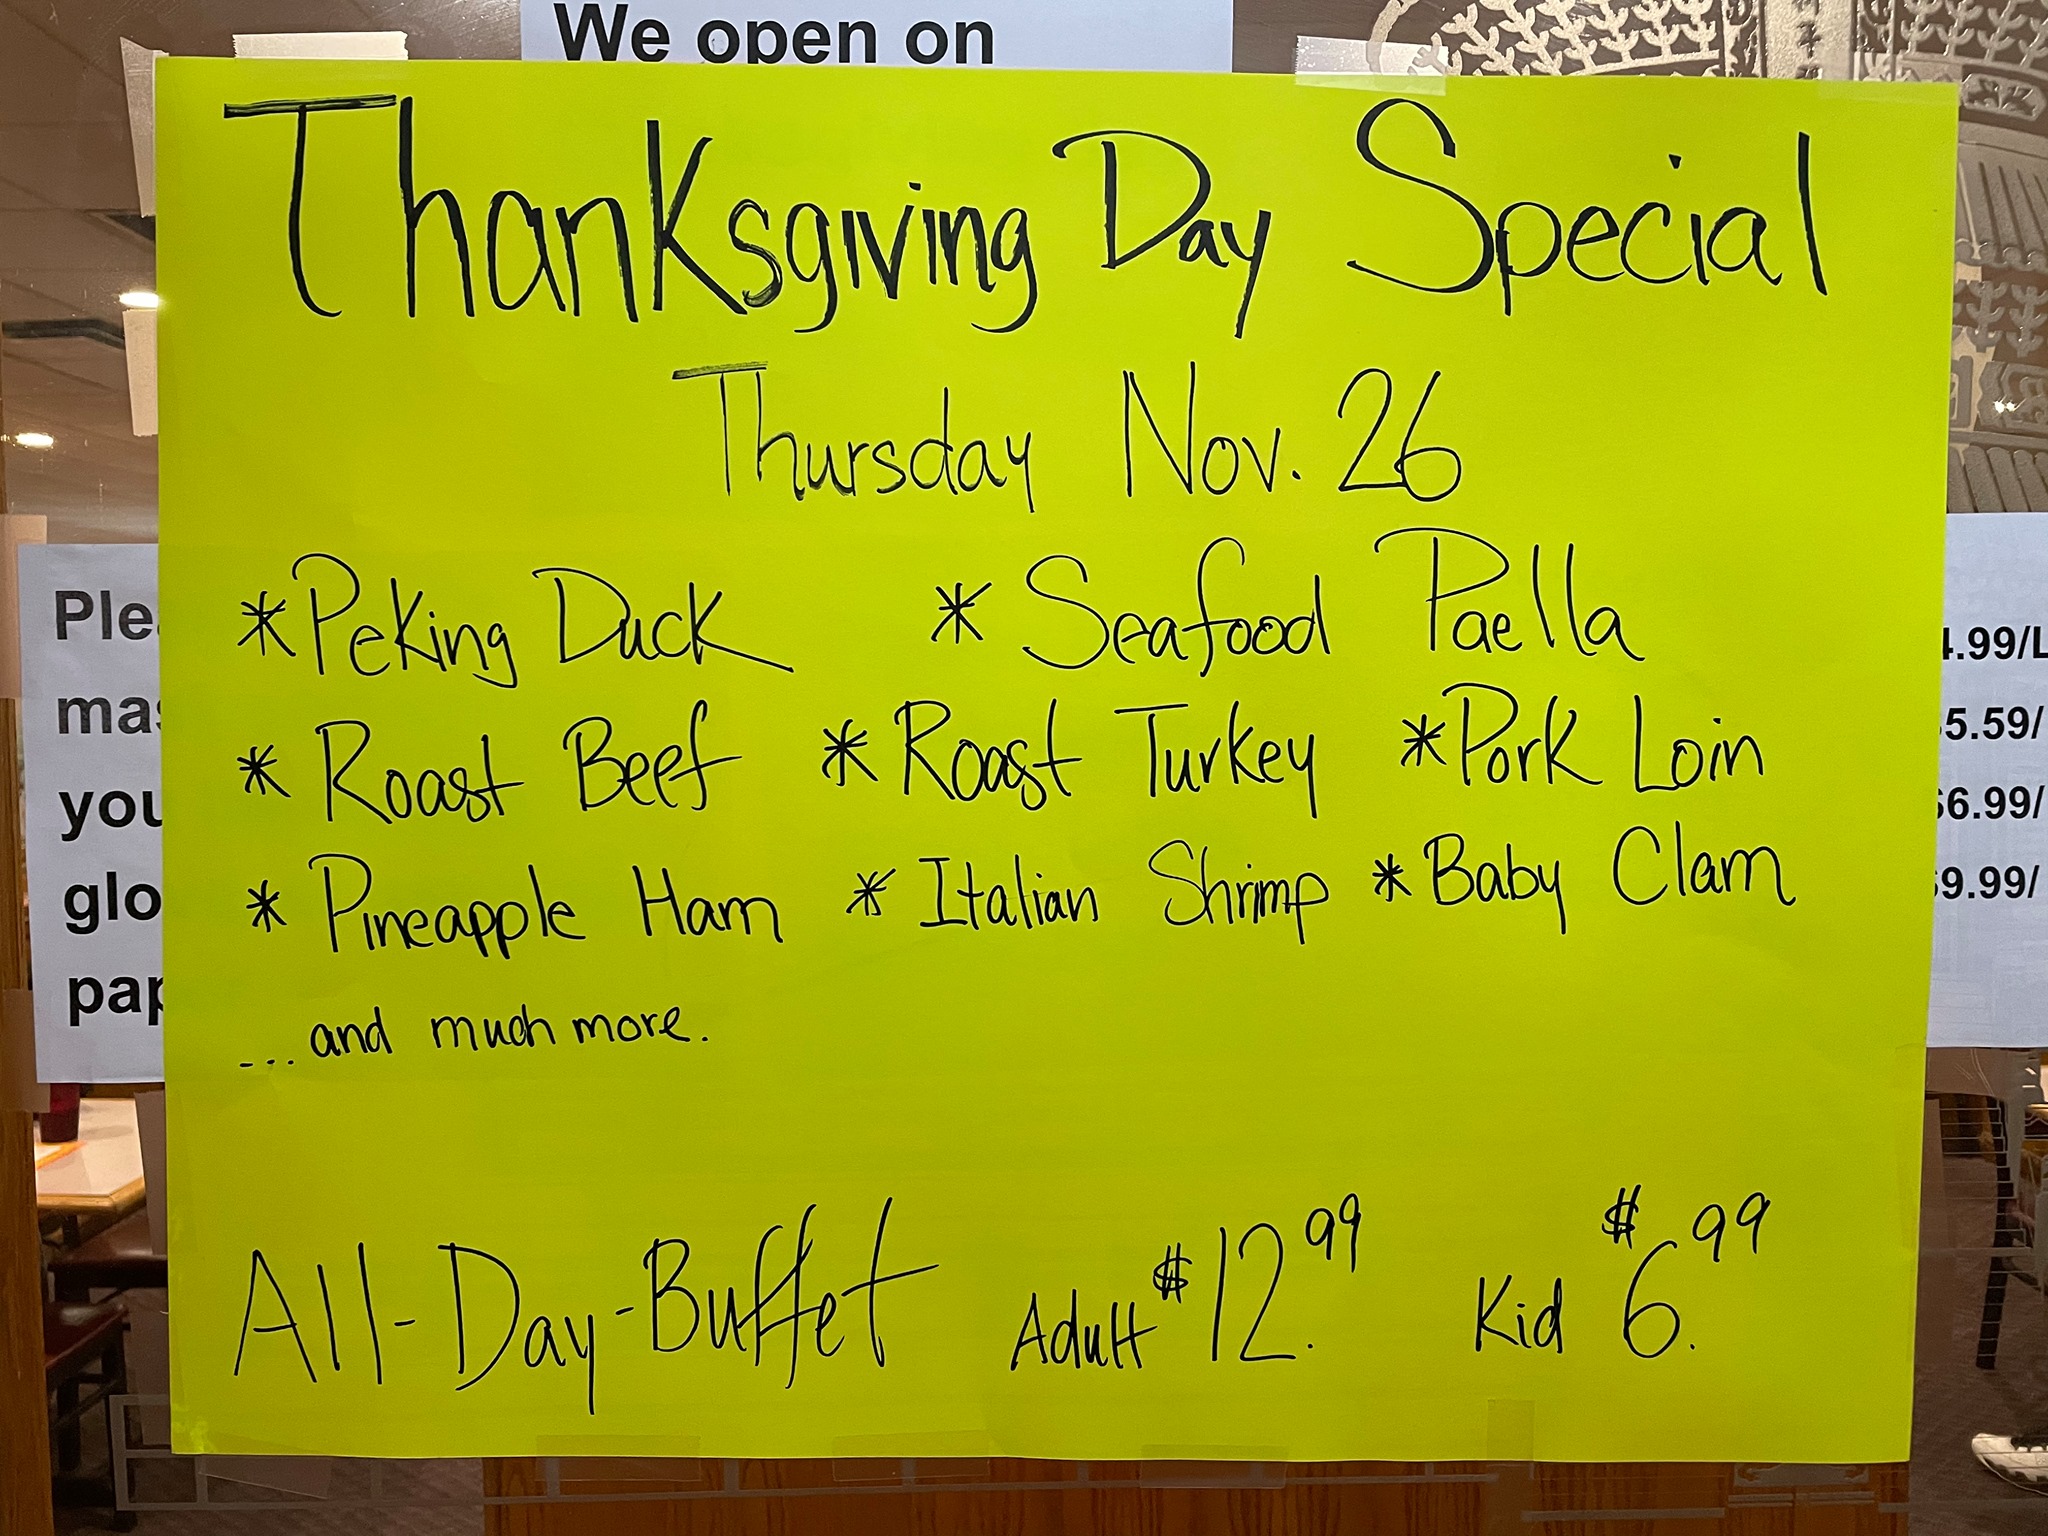 We open on
Thanksgiving Day Special
Thursday Nov. 26
* Peking Duck * Seafood Paella
* Roast Beef * Roast Turkey * Pork Loin
* Pineapple Ham * Italian Shrimp * Baby Clam
... and much more.
All-Day-Buffet Adult $12.99 Kid $6.99
you
4.99/L
5.59/
$6.99/
$9.99/